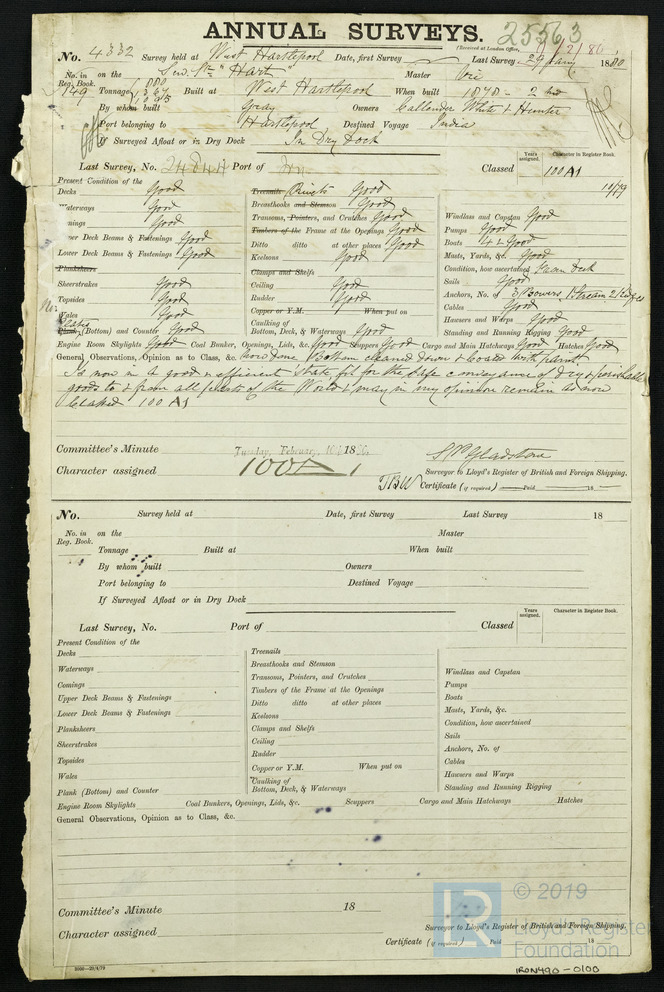 ANNUAL SURVEYS.
25563
(Received at London Office, 9/2/80
No. 4332 Survey held at West Hartlepool Date, first Survey Last Survey 29 Jany 1880
No. in Reg. Book. on the "Hart" Master
149 Tonnage Built at West Hartlepool When built 1878 - 2 mo
By whom built Gray Owners Callender White & Hunter
Port belonging to Hartlepool Destined Voyage India
If Surveyed Afloat or in Dry Dock In Dry Dock
Last Survey, No. Port of Classed
Years assigned.
Character in Register Book.
100 A1
10/79
Present Condition of the
Decks Good
Waterways Good
Comings Good
Upper Deck Beams & Fastenings Good
Lower Deck Beams & Fastenings Good
Planksheers
Sheerstrakes Good
Topsides Good
Wales Good
Plank (Bottom) and Counter Good
Treenails Rivets Good
Breasthooks and Stemson Good
Transoms, Pointers, and Crutches Good
Timbers of the Frame at the Openings Good
Ditto ditto at other places Good
Keelsons Good
Clamps and Shelfs
Ceiling Good
Rudder Good
Copper or Y.M. When put on
Caulking of
Bottom, Deck, & Waterways Good
Windlass and Capstan Good
Pumps Good
Boats 4 & Good
Masts, Yards, &c. Good
Condition, how ascertained From Deck
Sails Good
Anchors, No. of 3 Bowers 1 Stream 2 Kedges
Cables Good
Hawsers and Warps Good
Standing and Running Rigging Good
Engine Room Skylights Good Coal Bunker, Openings, Lids, &c. Good Scuppers Good Cargo and Main Hatchways Good Hatches Good
General Observations, Opinion as to Class, &c. Bottom cleaned down & coated with paint
Is now in a good & efficient state fit for the safe conveyance of dry & perishable
goods to & from all parts of the World & may in my opinion remain as now
Classed 100 A1
Committee's Minute Tuesday, February 10th 1880
Character assigned 100 A 1
Surveyor to Lloyd's Register of British and Foreign Shipping.
Certificate (if required) Paid 18
No. Survey held at Date, first Survey Last Survey 18
No. in Reg. Book. on the Master
Tonnage Built at When built
By whom built Owners
Port belonging to Destined Voyage
If Surveyed Afloat or in Dry Dock
Last Survey, No. Port of Classed
Years assigned.
Character in Register Book.
Present Condition of the
Decks
Waterways
Comings
Upper Deck Beams & Fastenings
Lower Deck Beams & Fastenings
Planksheers
Sheerstrakes
Topsides
Wales
Plank (Bottom) and Counter
Treenails
Breasthooks and Stemson
Transoms, Pointers, and Crutches
Timbers of the Frame at the Openings
Ditto ditto at other places
Keelsons
Clamps and Shelfs
Ceiling
Rudder
Copper or Y.M. When put on
Caulking of
Bottom, Deck, & Waterways
Windlass and Capstan
Pumps
Boats
Masts, Yards, &c.
Condition, how ascertained
Sails
Anchors, No. of
Cables
Hawsers and Warps
Standing and Running Rigging
Engine Room Skylights Coal Bunkers, Openings, Lids, &c. Scuppers Cargo and Main Hatchways Hatches
General Observations, Opinion as to Class, &c.
Committee's Minute 18
Character assigned
Surveyor to Lloyd's Register of British and Foreign Shipping.
Certificate (if required) Paid 18
LR
© 2019
Lloyd's Register
Foundation
IRON490-0100